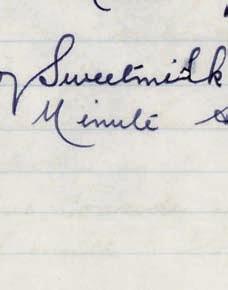 Sweetmilk
Minute